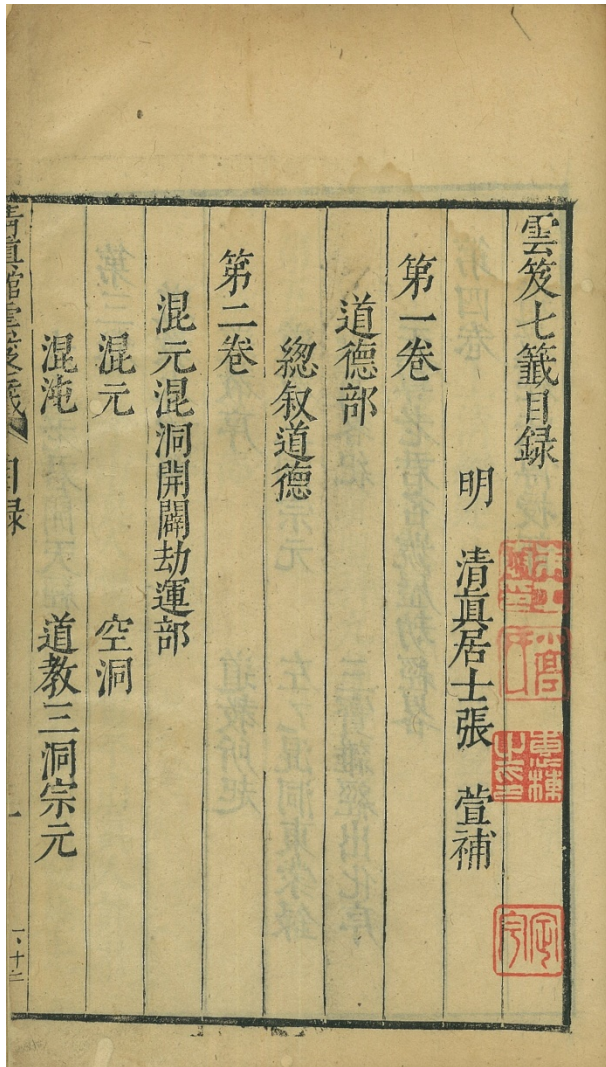 雲笈七籤目録
明 清眞居士張 萱補
第一卷
道德部
總叙道德
第二卷
混元混洞開闢劫運部
混元 空洞
混沌 道教三洞宗元
清真館雲笈七籤 目録 一